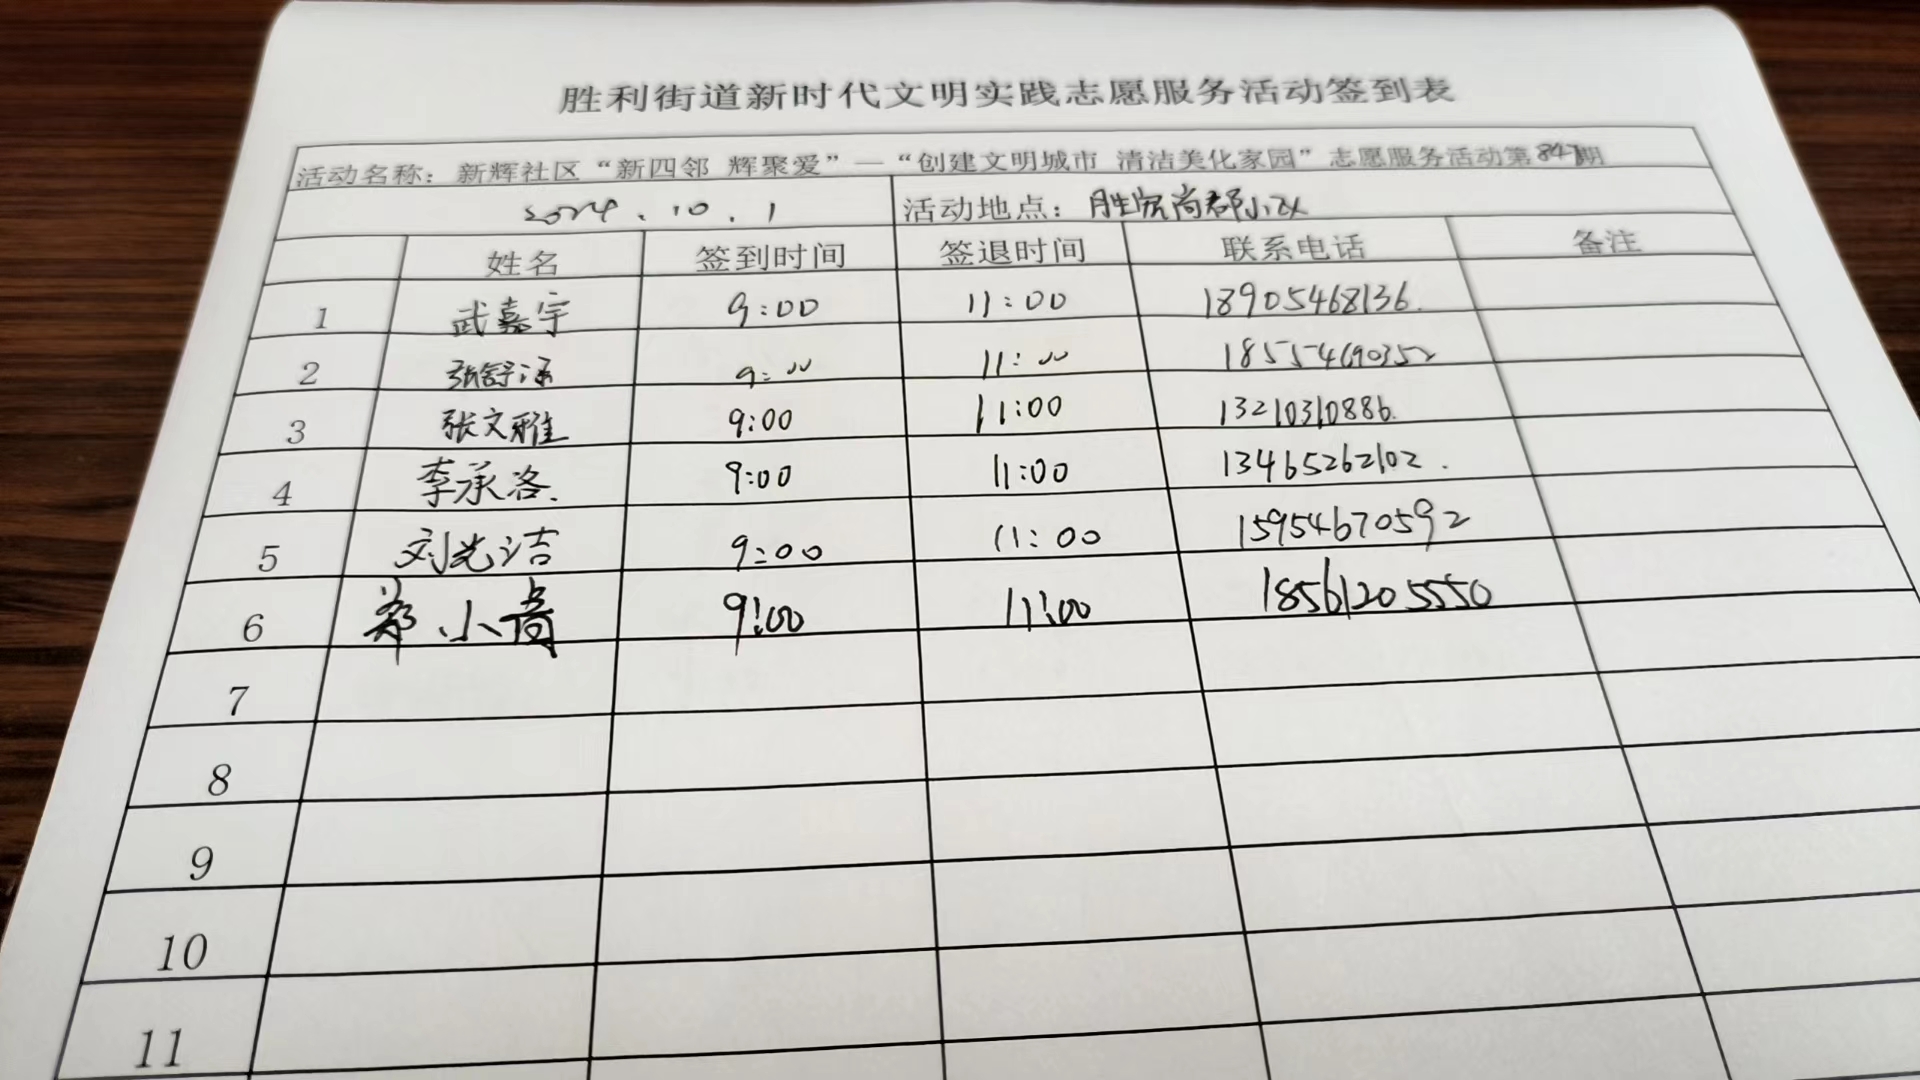 胜利街道新时代文明实践志愿服务活动签到表
活动名称：新辉社区“新四邻 辉聚爱”—“创建文明城市 清洁美化家园”志愿服务活动第847期
2024.10.1 活动地点：胜宏尚郡小区
姓名 签到时间 签退时间 联系电话 备注
1 武嘉宇 9:00 11:00 18905468136.
2 张舒涵 9:00 11:00 18554690352
3 张文雅 9:00 11:00 13210310886.
4 李承洛. 9:00 11:00 13465262102.
5 刘光洁 9:00 11:00 15954670592
6 小 9:00 11:00 18561205550
7
8
9
10
11